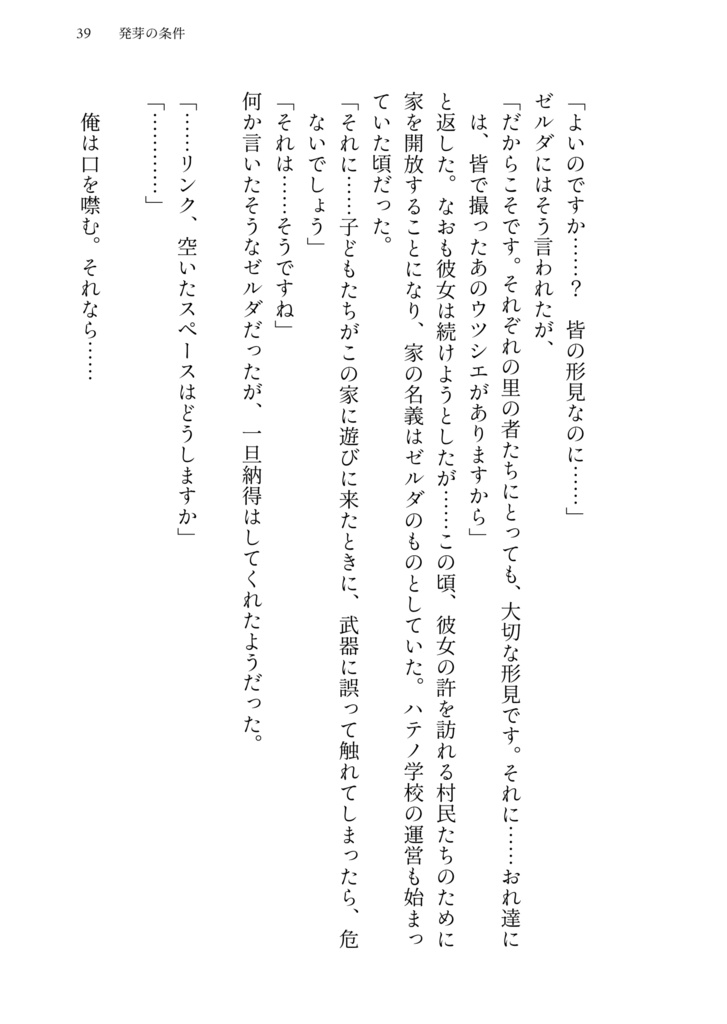 39　発芽の条件
「よいのですか……？　皆の形見なのに……」
ゼルダにはそう言われたが、
「だからこそです。それぞれの里の者たちにとっても、大切な形見です。それに……おれ達に
は、皆で撮ったあのウツシエがありますから」
と返した。なおも彼女は続けようとしたが……この頃、彼女の許を訪れる村民たちのために
家を開放することになり、家の名義はゼルダのものとしていた。ハテノ学校の運営も始まっ
ていた頃だった。
「それに……子どもたちがこの家に遊びに来たときに、武器に誤って触れてしまったら、危
ないでしょう」
「それは……そうですね」
何か言いたそうなゼルダだったが、一旦納得はしてくれたようだった。
「……リンク、空いたスペースはどうしますか」
「…………」
俺は口を噤む。それなら……